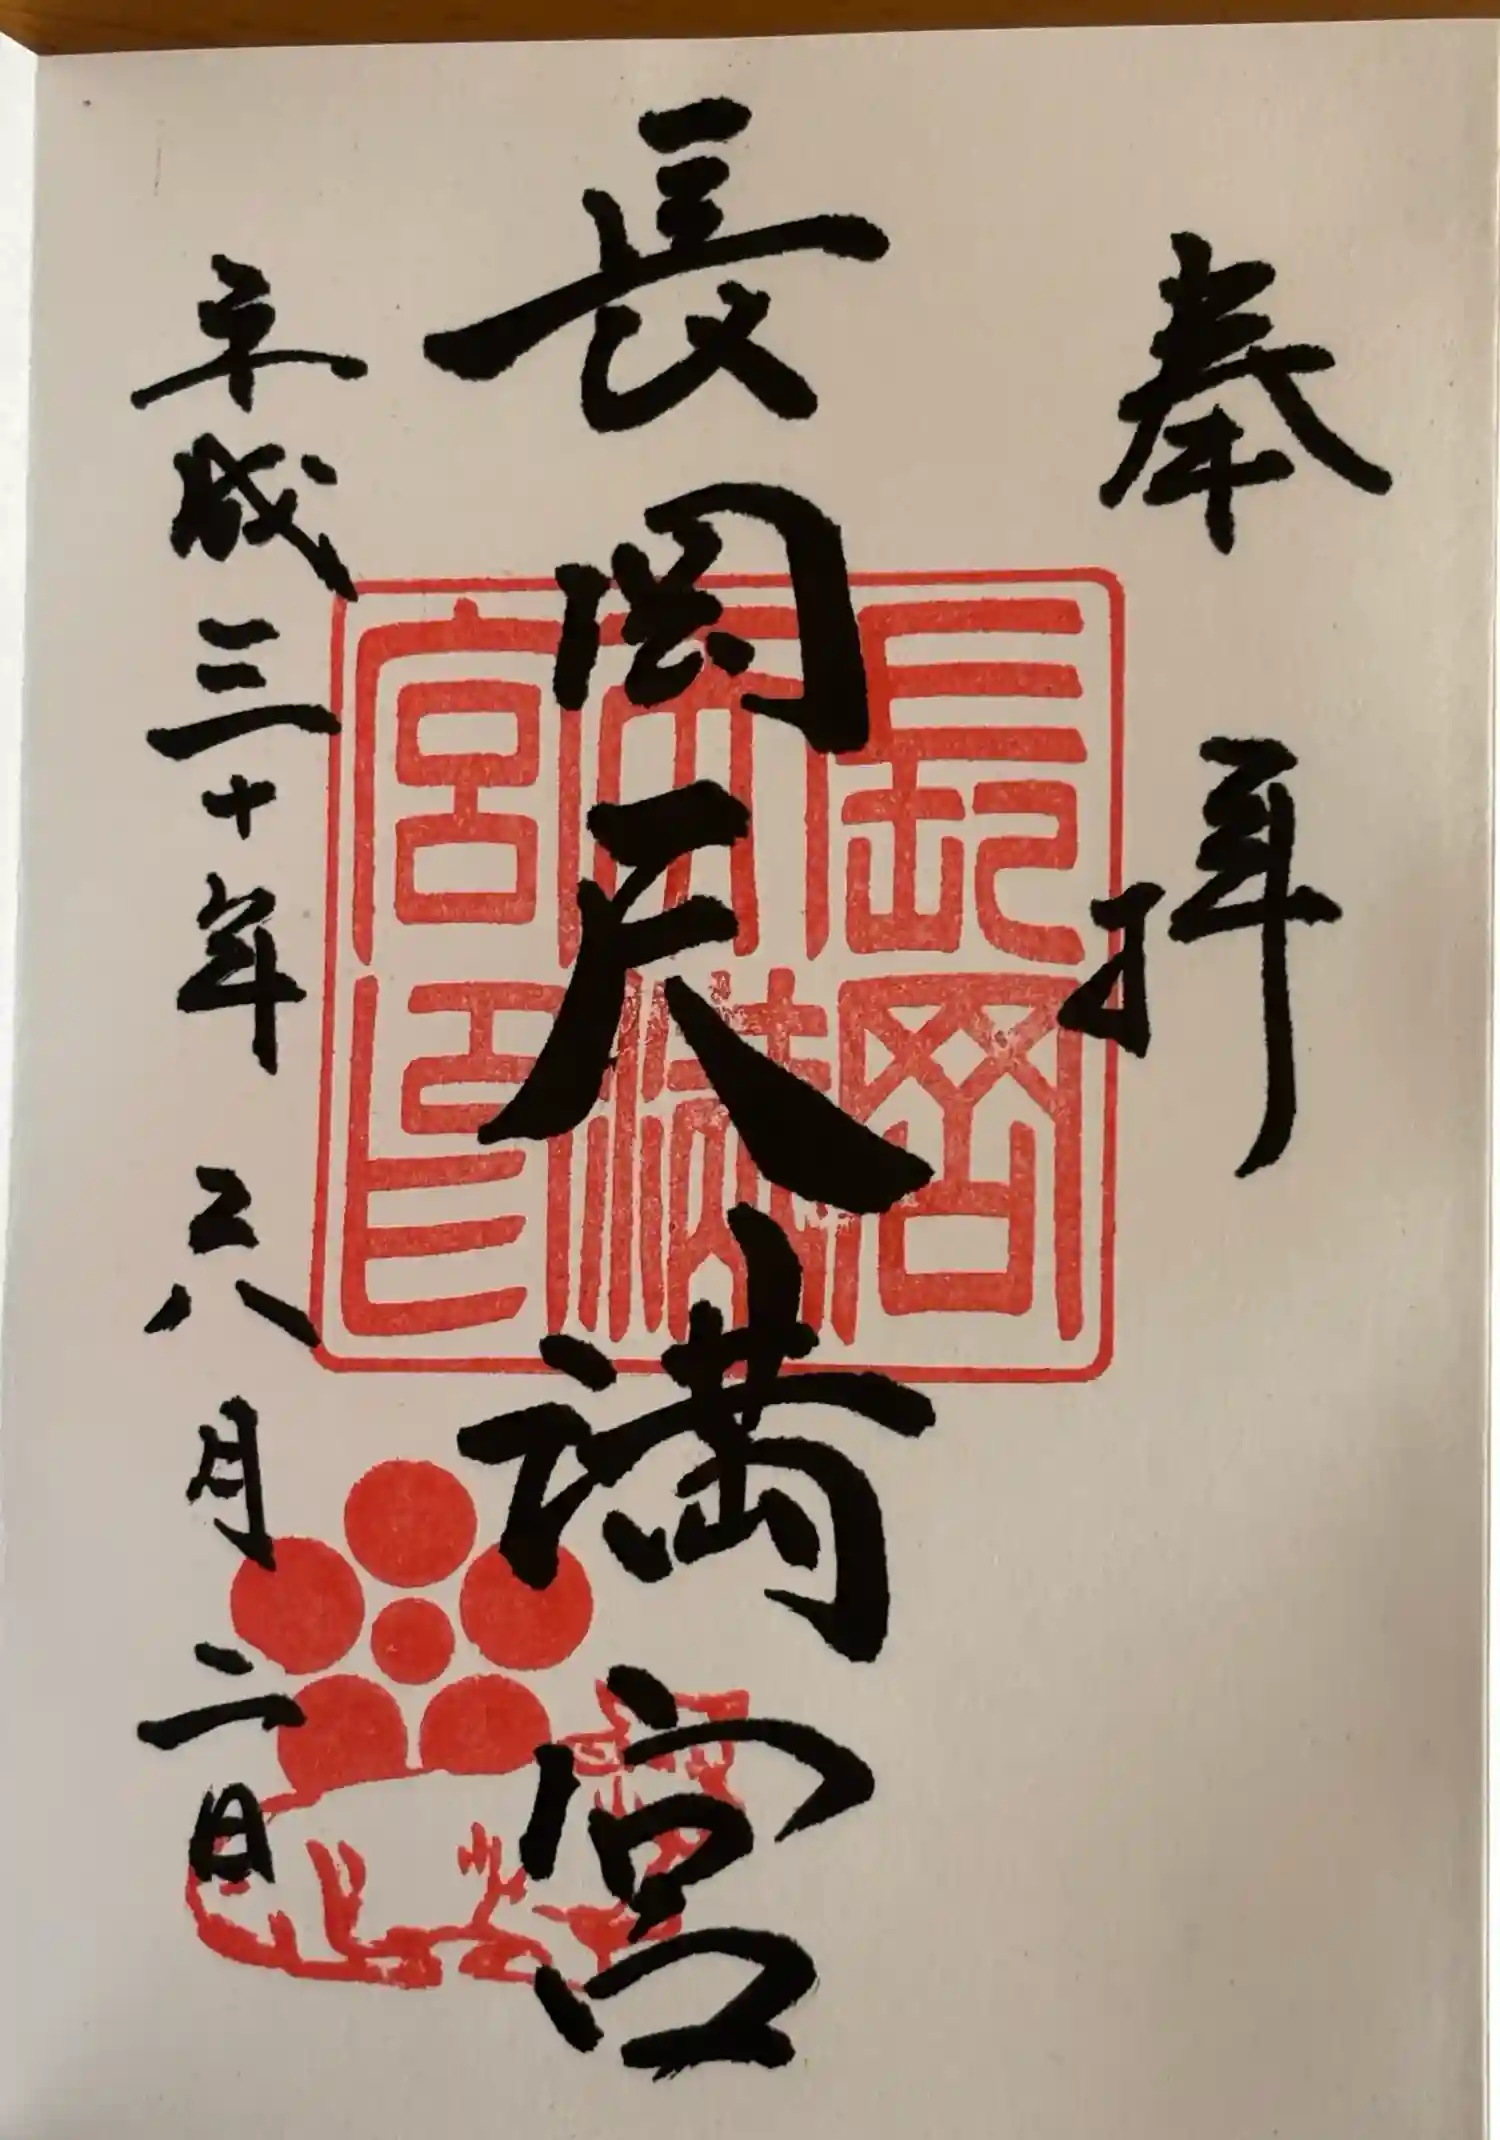 奉拝
長岡天満宮
平成三十年六月二日
長岡
天満
宮印